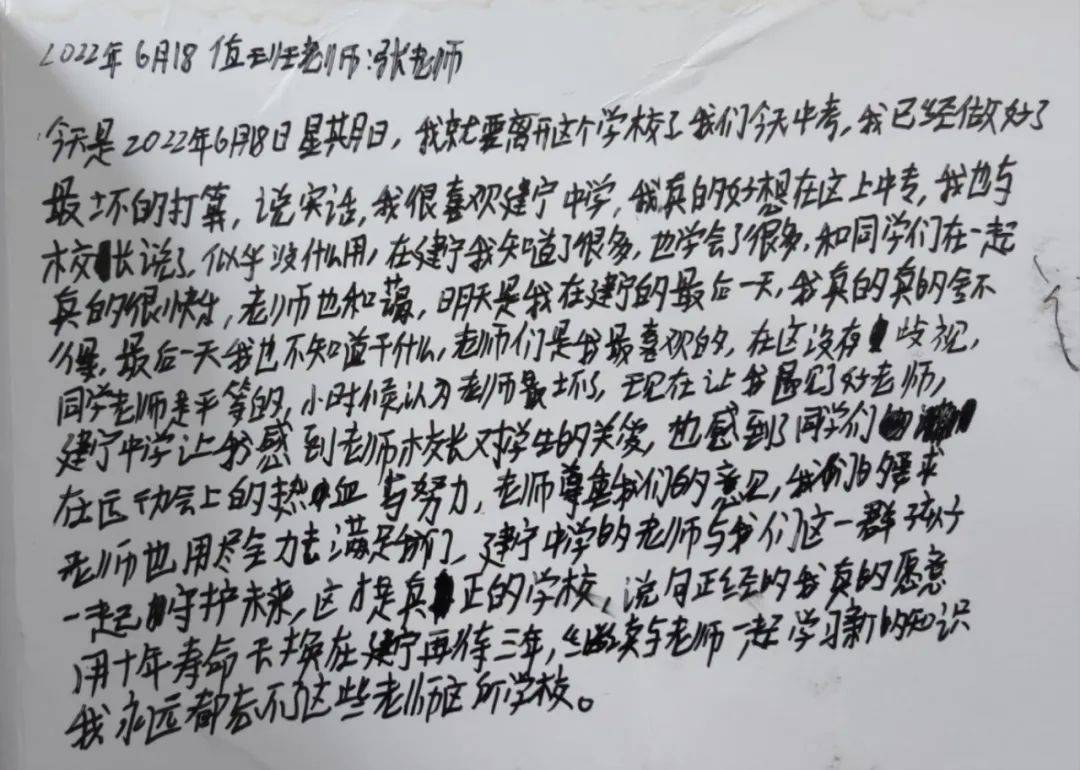 2022年6月18 值班老师:张老师
今天是2022年6月18日星期日,我就要离开这个学校了我们今天中考,我已经做好了
最坏的打算,说实话,我很喜欢建宁中学,我真的好想在这上中专,我也与
校长说了,似乎没什么用,在建宁我知道了很多,也学会了很多,和同学们在一起
真的很快生,老师也和蔼,明天是我在建宁的最后一天,我真的真的舍不
得,最后一天我也不知道干什么,老师们是我最喜欢的,在这没有歧视,
同学老师是平等的,小时候认为老师最坏了,现在让我遇见了好老师,
建宁中学让我感到老师校长对学生的关爱,也感到了同学们
在运动会上的热血与努力,老师尊重我们的意见,我们的要求
老师也用尽全力去满足我们、建宁中学的老师与我们这一群孩子
一起守护未来,这才是真正的学校,说句正经的我真的愿意
用十年寿命去换在建宁再待三年,继续与老师一起学习新的知识
我永远都忘不了这些老师这所学校。